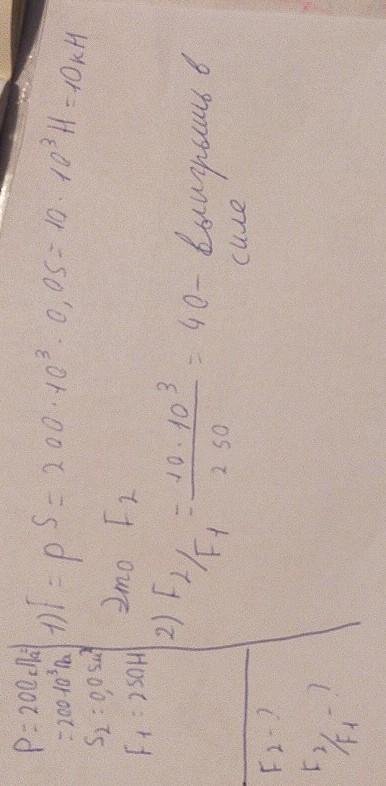 P = 200 кПа
= 200·10³ Па
S₂ = 0,05 м²
F₁ = 250 Н
F₂ - ?
F₂/F₁ - ?
1) F = p S = 200 · 10³ · 0,05 = 10 · 10³ Н = 10 кН
Это F₂
2) F₂/F₁ = 10 · 10³ / 250 = 40 - выигрышь в
силе